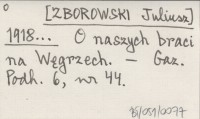 [ZBOROWSKI Juliusz]
1918... O naszych braci
na Węgrzech. — Gaz.
Podh. 6, nr 44.
95/051/0077